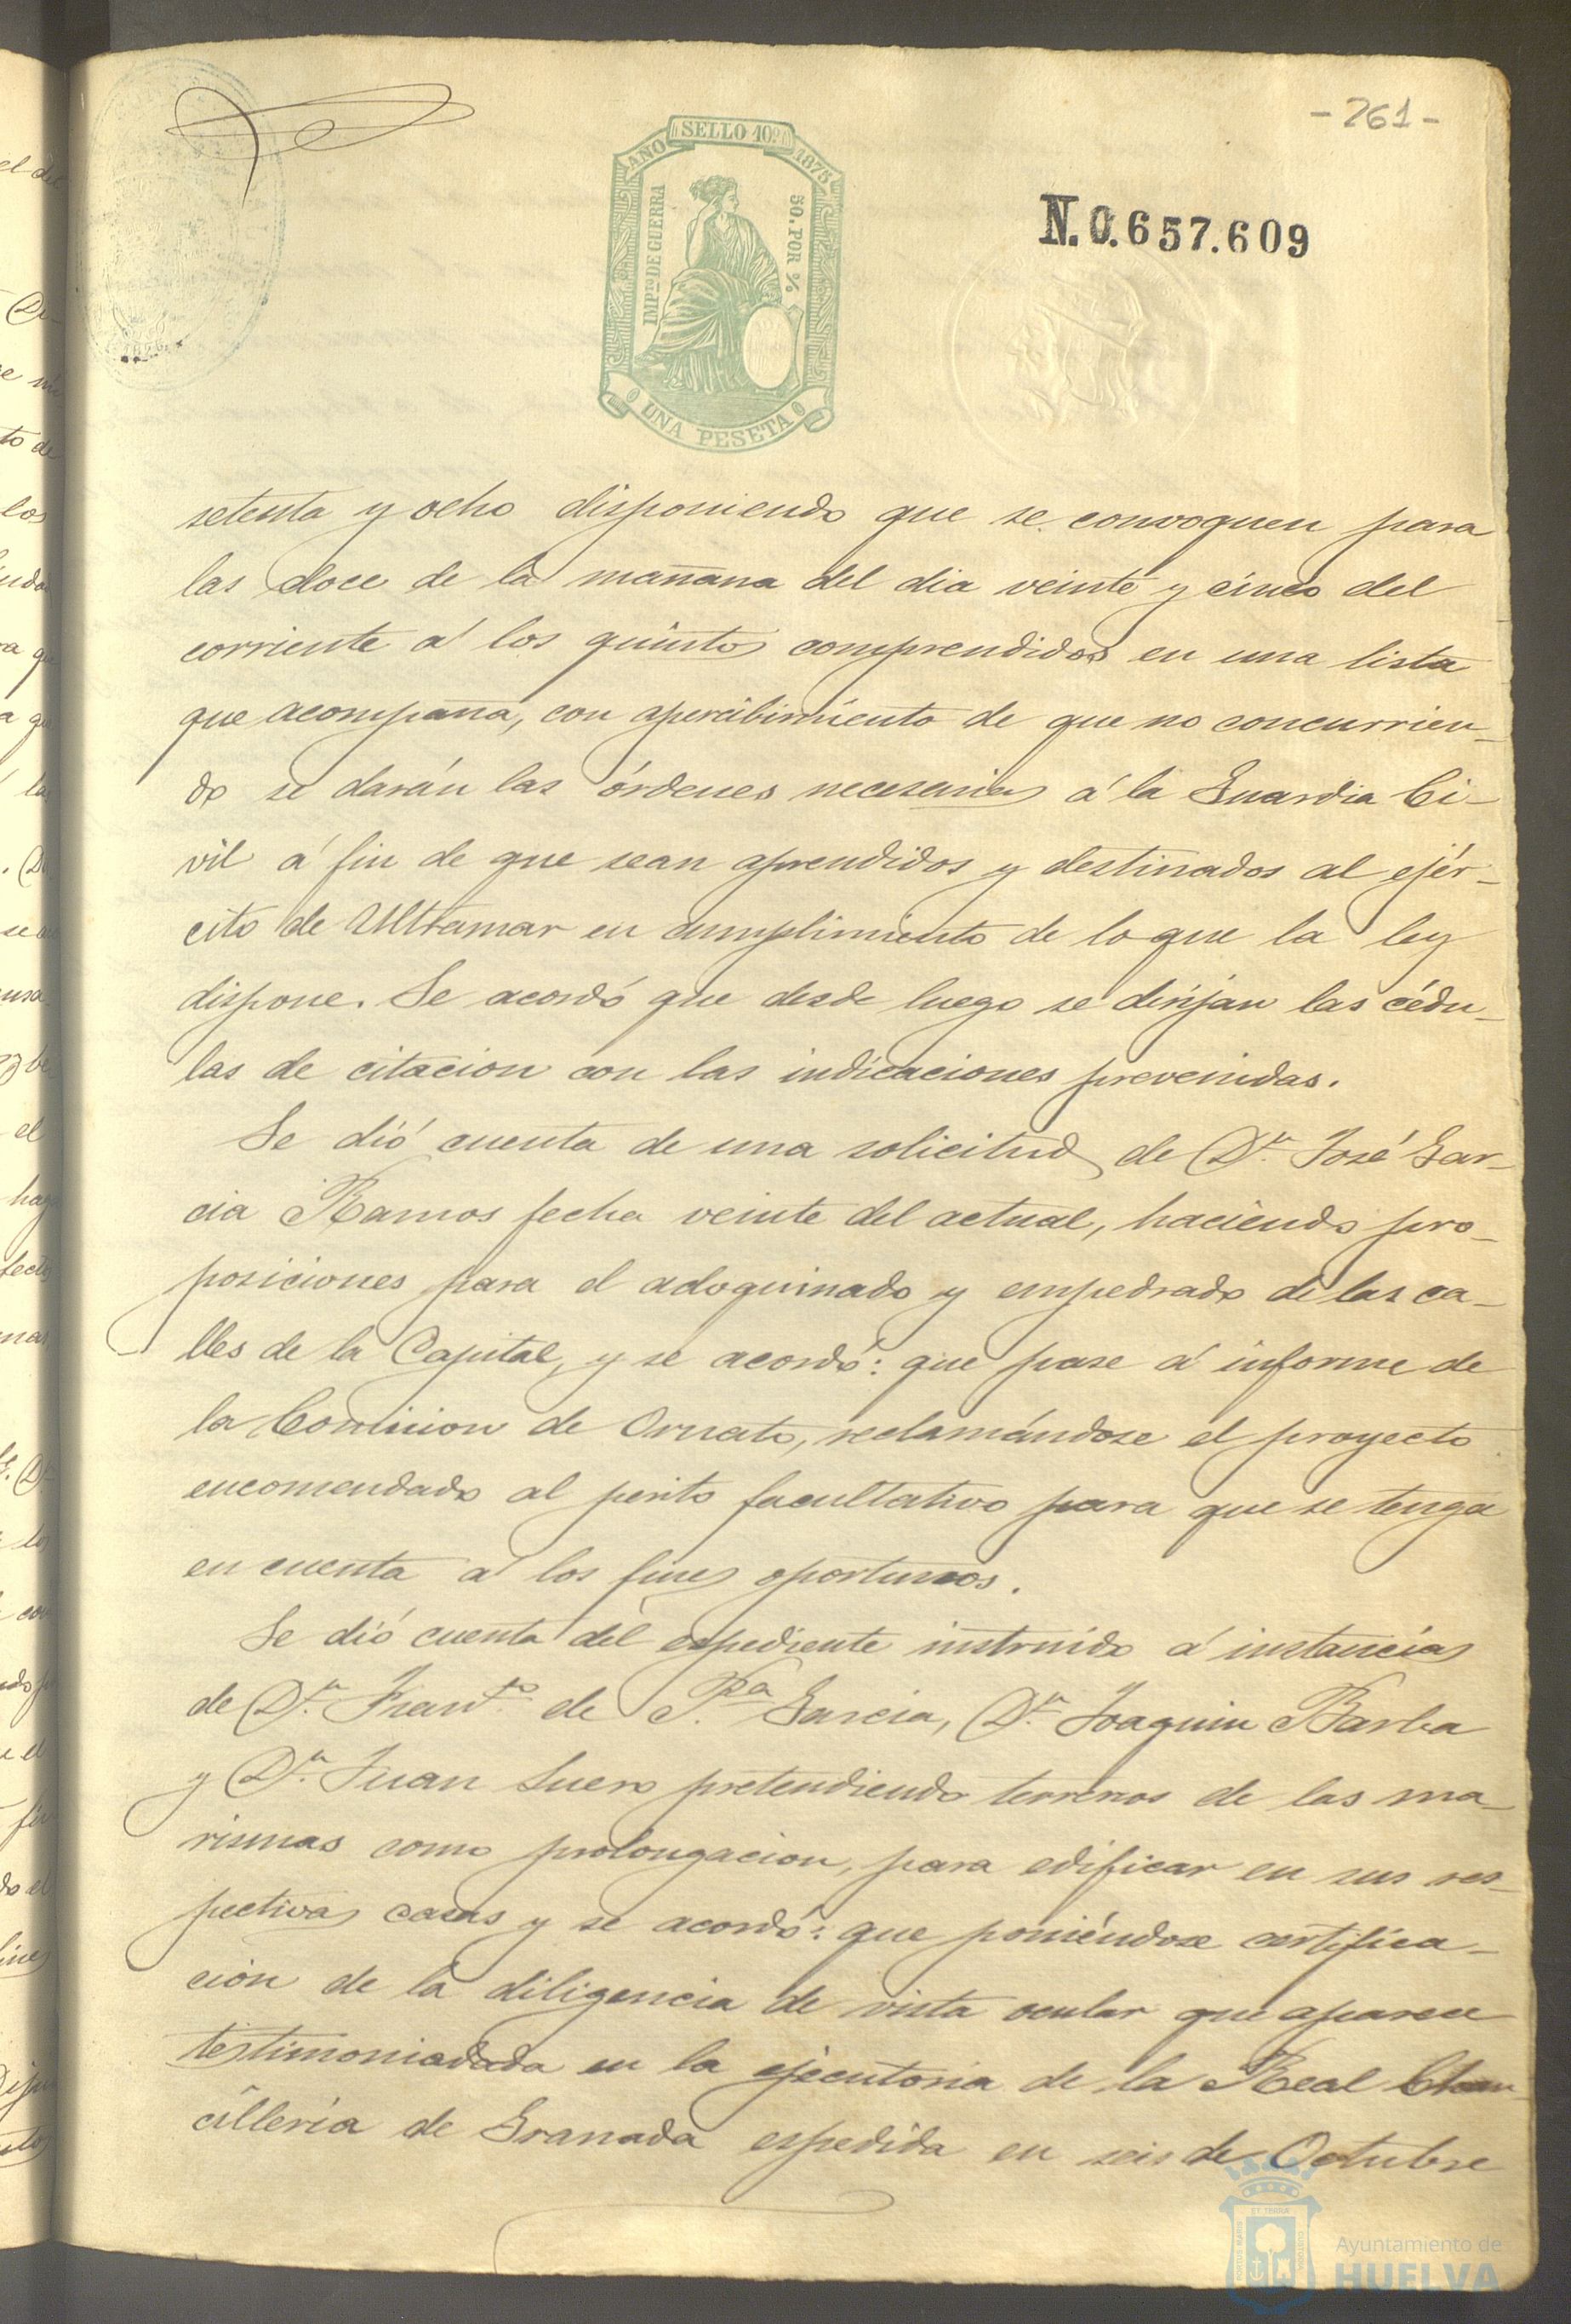 - 261 -
SELLO 10º
AÑO 1875
IMPTO DE GUERRA
50. POR %
UNA PESETA
N. 0.657.609
setenta y ocho disponiendo que se convoquen para
las doce de la mañana del dia veinte y cinco del
corriente á los quintos comprendidos en una lista
que acompaña, con apercibimiento de que no concurrien-
do se darán las órdenes necesarias á la Guardia Ci-
vil á fin de que sean aprendidos y destinados al ejér-
cito de Ultramar en cumplimiento de lo que la ley
dispone. Se acordó que desde luego se dirijan las cédu-
las de citacion con las indicaciones prevenidas.
Se dió cuenta de una solicitud de Dn. José Gar-
cia Ramos fecha veinte del actual, haciendo pro-
posiciones para el adoquinado y empedrado de las ca-
lles de la Capital, y se acordó: que pase á informe de
la Comision de Ornato, reclamándose el proyecto
encomendado al perito facultativo para que se tenga
en cuenta á los fines oportunos.
Se dió cuenta del espediente instruido á instancias
de Dn. Franco. de P.la Garcia, Dn. Joaquin Barba
y Dn. Juan Suero pretendiendo terrenos de las ma-
rismas como prolongacion, para edificar en sus res-
pectivas casas y se acordó: que poniéndose certifica-
cion de la diligencia de vista ocular que aparece
testimoniadada en la ejecutoria de la Real Chan-
cilleria de Granada espedida en seis de Octubre
Ayuntamiento de
HUELVA